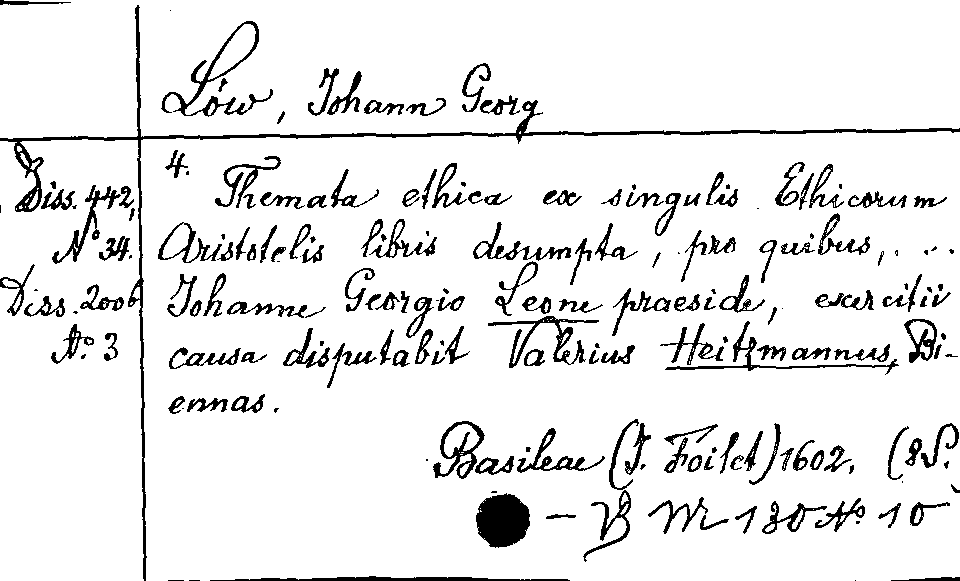 Löw, Johann Georg
Diss. 442,
No 34.
Diss. 2006
No. 3
4.
Themata ethica ex singulis Ethicorum
Aristotelis libris desumpta, pro quibus, ...
Johanne Georgio Leone praeside, exercitii
causa disputabit Valerius Heitzmannus, Bi-
ennas.
Basileae (J. Foilet) 1602. (8S.
– VB M 130 No 10